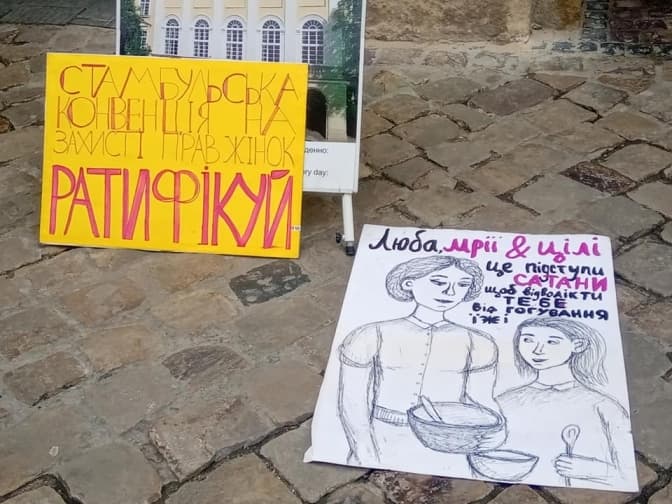 СТАМБУЛЬСЬКА
КОНВЕНЦІЯ НА
ЗАХИСТІ ПРАВ ЖІНОК
РАТИФІКУЙ
денно:
ery day:
Люба, мрії & цілі
це підступи
САТАНИ
щоб відволікти
ТЕБЕ
від готування
їжі